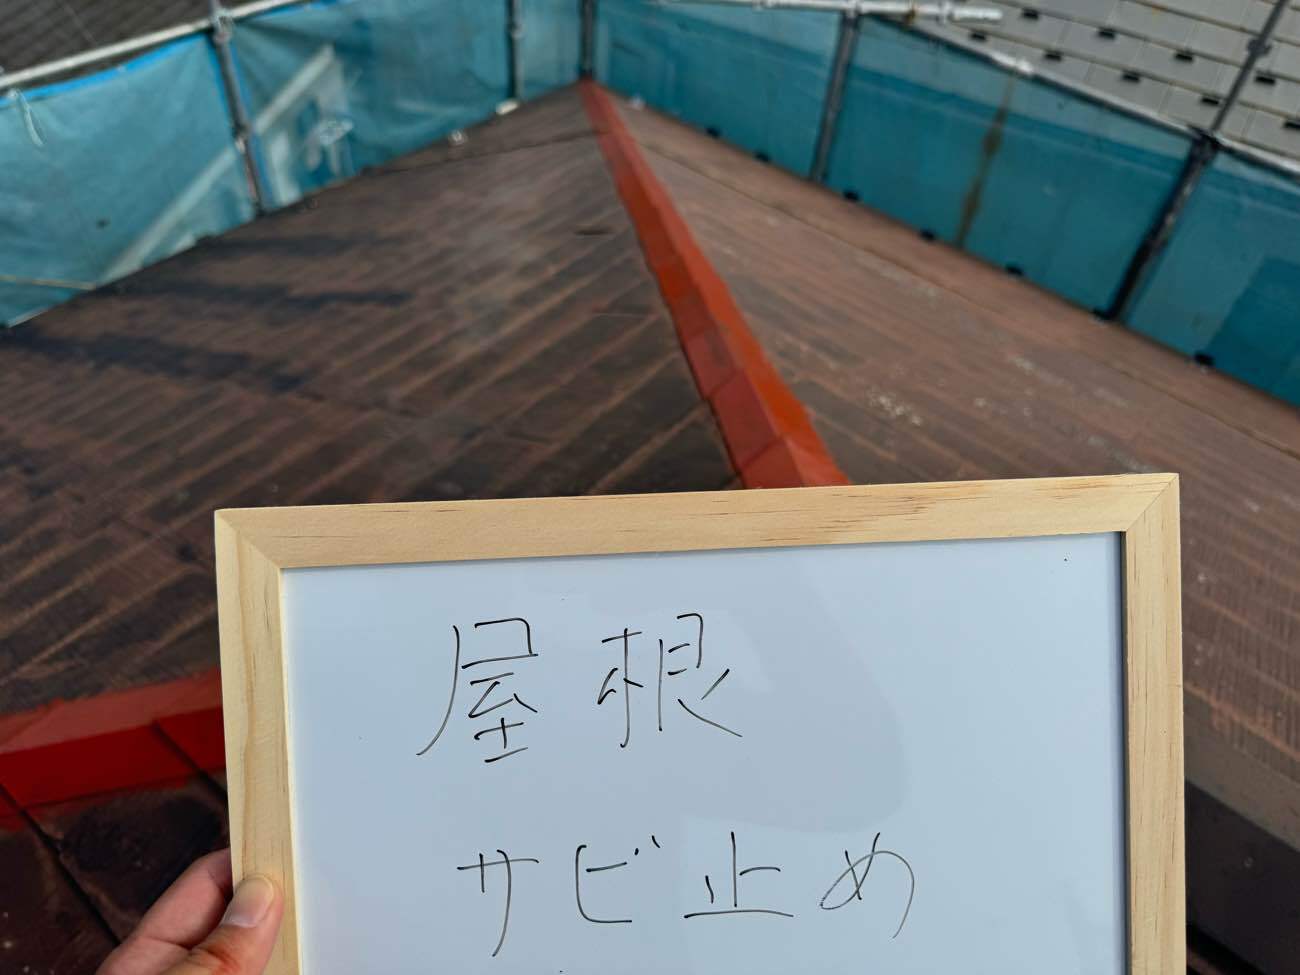 屋根
サビ止め